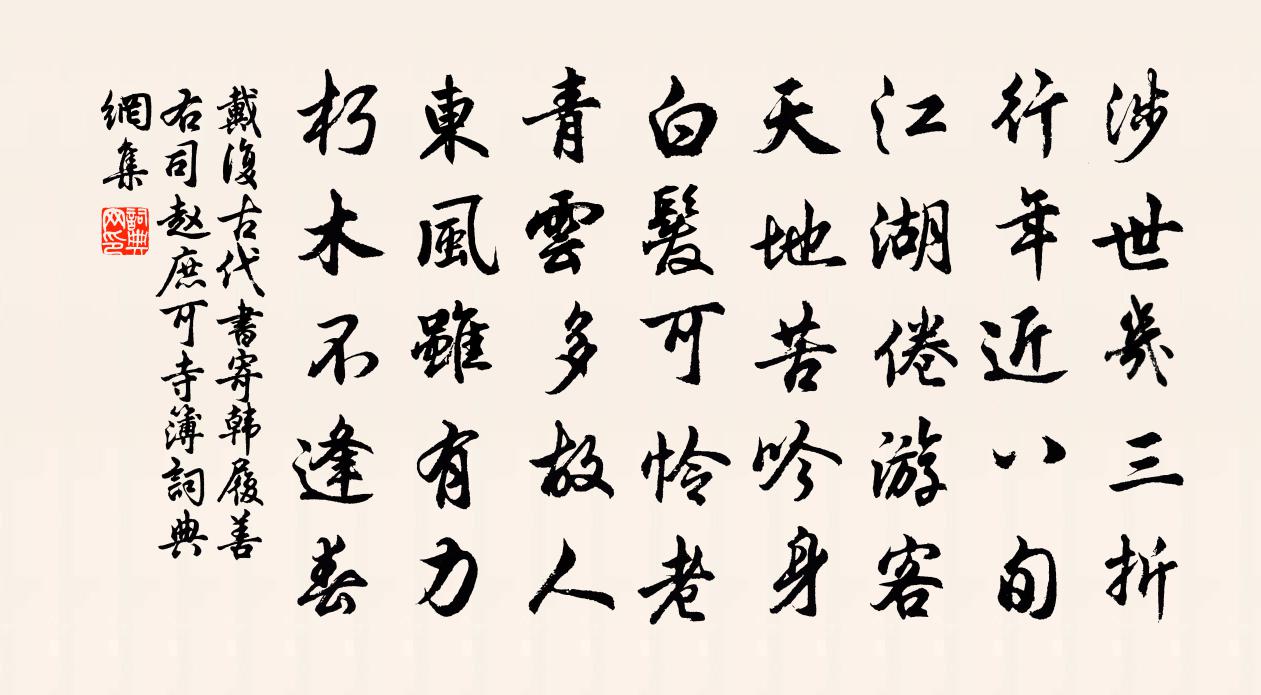 涉世幾三折
行年近八旬
江湖倦游客
天地苦吟身
白髮可怜老
青雲多故人
東風雖有力
朽木不逢春
戴復古代書寄韩履善
右司赵庶可寺簿詞典
網集
詞典网印